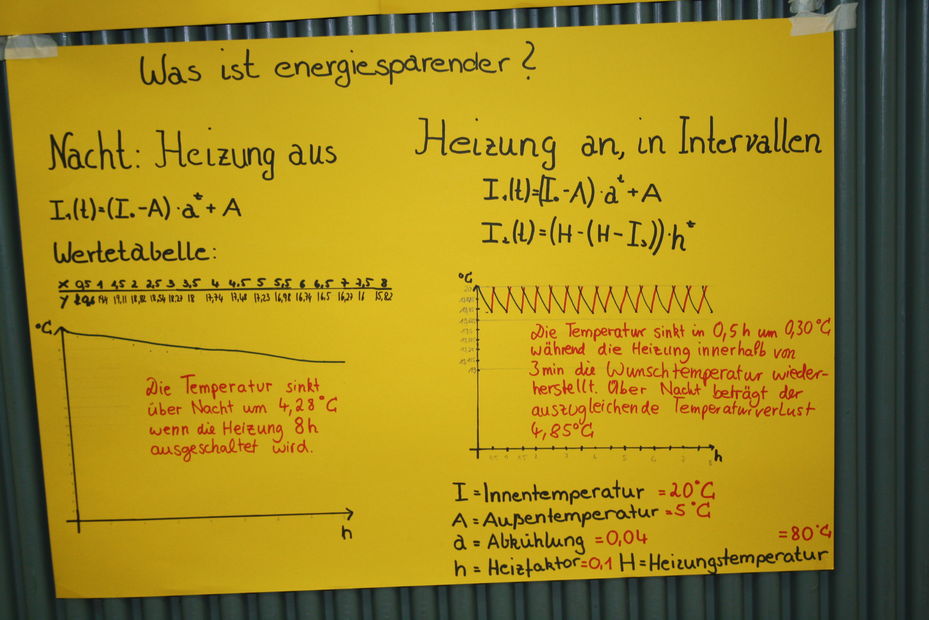 Was ist energiesparender?
Nacht: Heizung aus
I₁(t)=(I₀-A)·aᵗ+A
Wertetabelle:
X 0,5 1 1,5 2 2,5 3 3,5 4 4,5 5 5,5 6 6,5 7 7,5 8
Y 19,4 19,11 18,82 18,54 18,27 18 17,74 17,48 17,23 16,98 16,74 16,5 16,27 16 15,82
°C
Die Temperatur sinkt
über Nacht um 4,28°C
wenn die Heizung 8h
ausgeschaltet wird.
h
Heizung an, in Intervallen
I₁(t)=(I₀-A)·aᵗ+A
I₂(t)=(H-(H-I₃))·hᵗ
°C
20
Die Temperatur sinkt in 0,5h um 0,30°C
während die Heizung innerhalb von
3min die Wunschtemperatur wieder-
herstellt. Über Nacht beträgt der
auszugleichende Temperaturverlust
4,85°C
h
I = Innentemperatur = 20°C
A = Außentemperatur = 5°C
a = Abkühlung = 0,04
= 80°C
h = Heizfaktor = 0,1 H = Heizungstemperatur